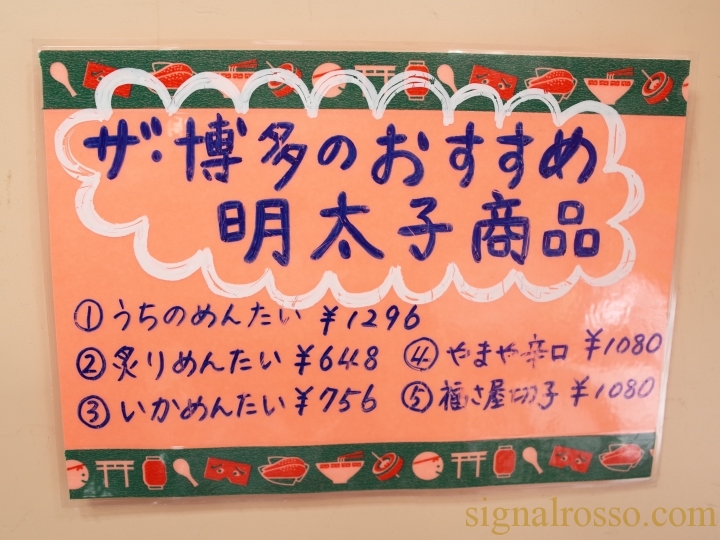 ザ・博多のおすすめ
明太子商品
①うちのめんたい ¥1296
②炙りめんたい ¥648
③いかめんたい ¥756
④やまや辛口 ¥1080
⑤福さ屋切子 ¥1080
signalrosso.com